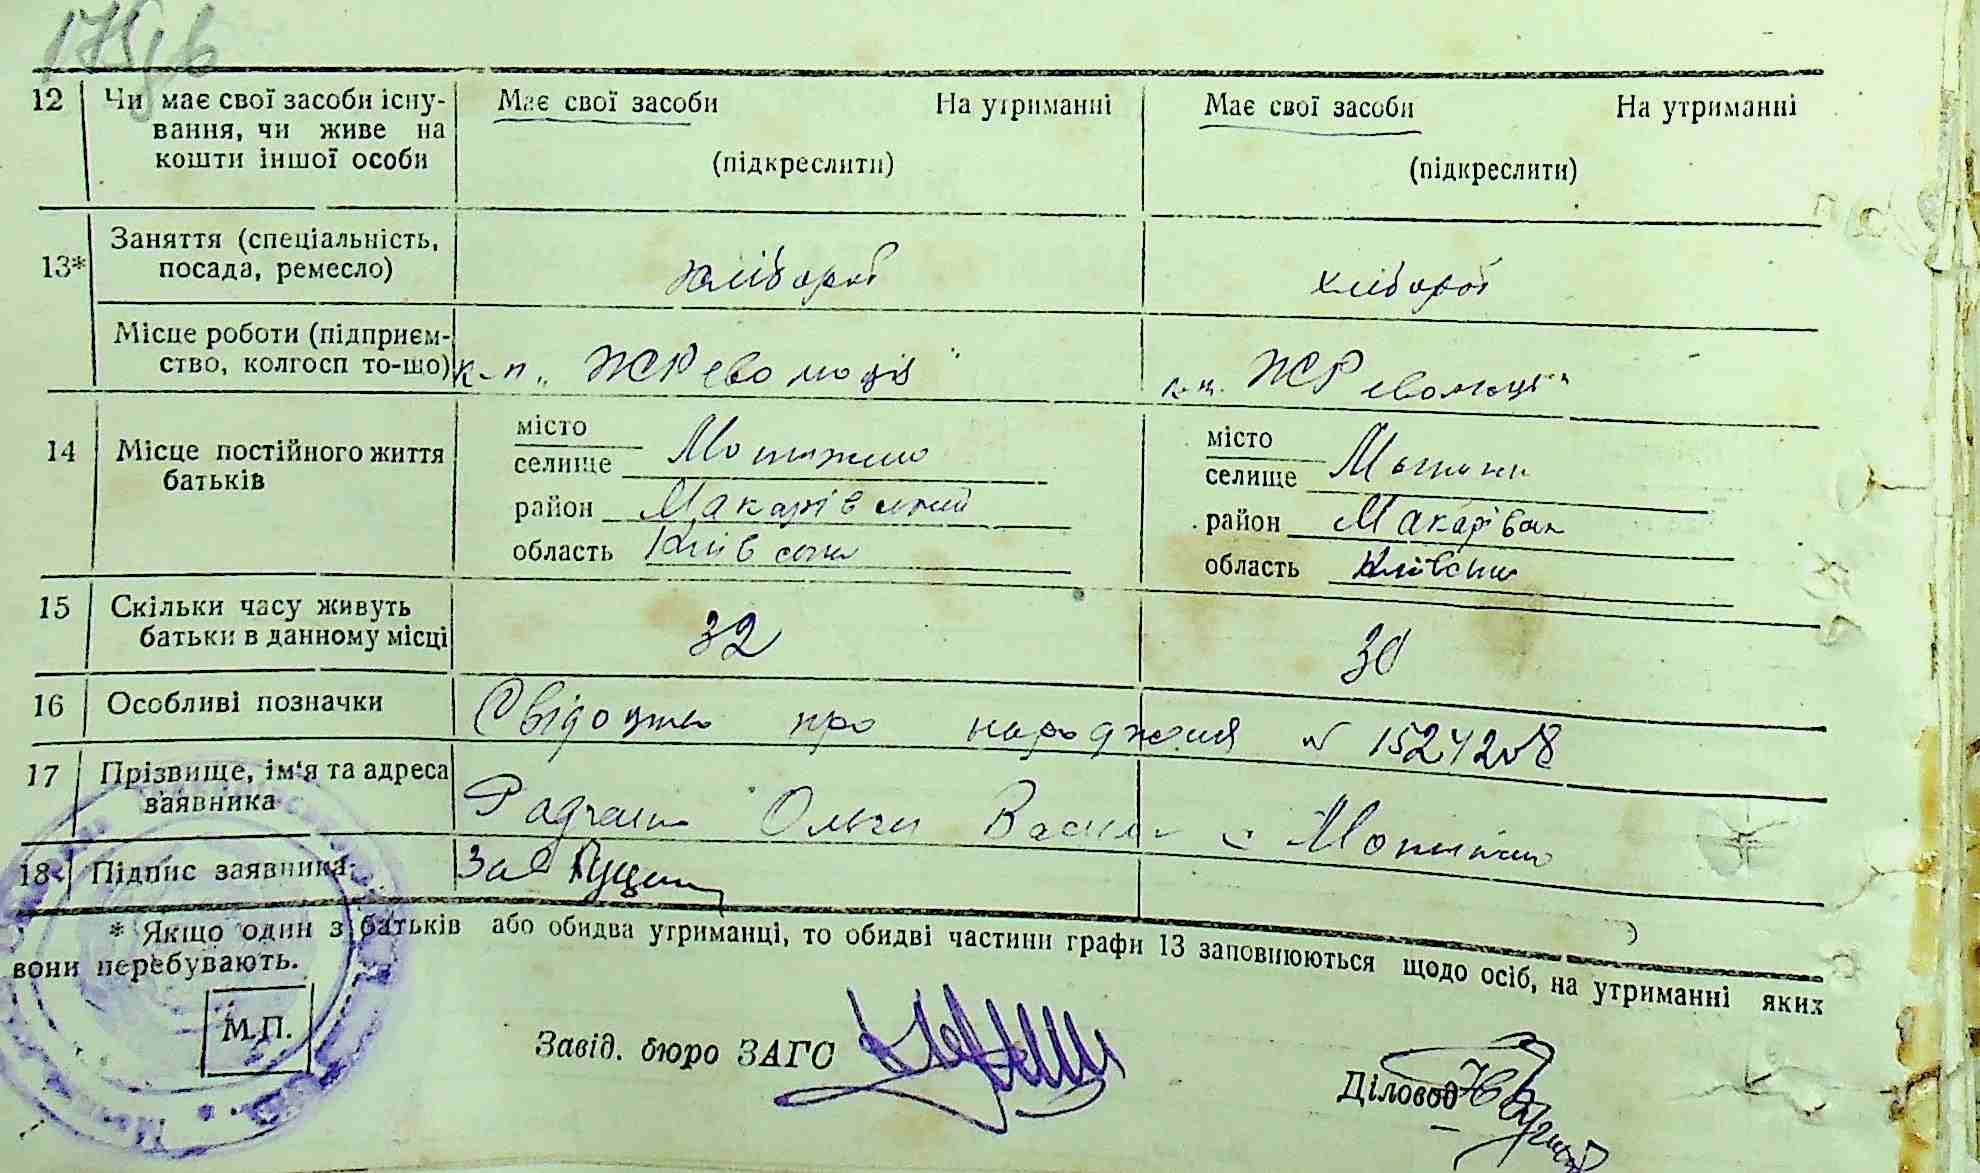 12 Чи має свої засоби існу- Має свої засоби На утриманні Має свої засоби На утриманні
вання, чи живе на
кошти іншої особи (підкреслити) (підкреслити)
13* Заняття (спеціальність,
посада, ремесло) хлібороб хлібороб
Місце роботи (підприєм-
ство, колгосп то-що) к-п „ЖРеволюція"
14 Місце постійного життя
батьків
місто місто
селище Мотижино селище
район Макарівський район Макарівськ
область Київська область Київськ
15 Скільки часу живуть
батьки в данному місці 32 30
16 Особливі позначки Свідоцтво про народження №
17 Прізвище, ім'я та адреса
заявника Ольги Васил с Мотижин
18 Підпис заявника За
* Якщо один з батьків або обидва утриманці, то обидві частини графи 13 заповнюються щодо осіб, на утриманні яких
вони перебувають.
М.П.
Завід. бюро ЗАГС
Діловод